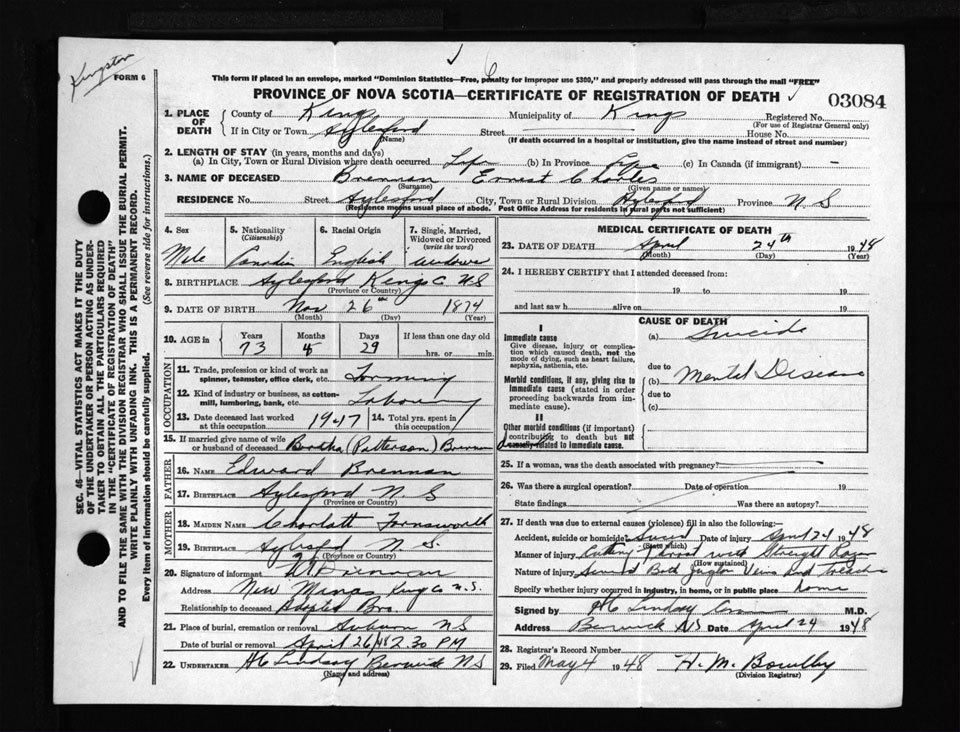 Kingston
FORM 6
This form if placed in an envelope, marked "Dominion Statistics—Free, penalty for improper use $300," and properly addressed will pass through the mail "FREE"
PROVINCE OF NOVA SCOTIA—CERTIFICATE OF REGISTRATION OF DEATH
03084
1. PLACE OF DEATH County of Kings Municipality of Kings Registered No.
(For use of Registrar General only)
If in City or Town Aylesford Street House No.
(Name) (If death occurred in a hospital or institution, give the name instead of street and number)
2. LENGTH OF STAY (in years, months and days)
(a) In City, Town or Rural Division where death occurred Life (b) In Province Life (c) In Canada (if immigrant) -
3. NAME OF DECEASED Brennan Ernest Charles
(Surname) (Given name or names)
RESIDENCE No. Street Aylesford City, Town or Rural Division Aylesford Province N S
(Residence means usual place of abode. Post Office Address for residents in rural parts not sufficient)
4. Sex 5. Nationality (Citizenship) 6. Racial Origin 7. Single, Married, Widowed or Divorced (write the word)
Male Canadian English Widower
8. BIRTHPLACE Aylesford Kings C. N.S
(Province or Country)
9. DATE OF BIRTH Nov 26th 1874
(Month) (Day) (Year)
10. AGE in Years Months Days If less than one day
73 29 hrs. or min.
OCCUPATION
11. Trade, profession or kind of work as spinner, teamster, office clerk, etc. Farming
12. Kind of industry or business, as cotton-mill, lumbering, bank, etc. Laboring
13. Date deceased last worked at this occupation 1947 14. Total yrs. spent in this occupation
15. If married give name of wife or husband of deceased Bertha (Patterson) Brennan
FATHER
16. NAME Edward Brennan
17. BIRTHPLACE Aylesford N. S
(Province or Country)
MOTHER
18. MAIDEN NAME Charlott Farnsworth
19. BIRTHPLACE Aylesford N. S.
(Province or Country)
20. Signature of informant Brennan
Address New Minas, Kings Co N.S.
Relationship to deceased Adopted Bro.
21. Place of burial, cremation or removal Auburn NS
Date of burial or removal April 26/48 2.30 PM
22. UNDERTAKER H C Lindsay Berwick N S
(Name and address)
MEDICAL CERTIFICATE OF DEATH
23. DATE OF DEATH April 24th 1948
(Month) (Day) (Year)
24. I HEREBY CERTIFY that I attended deceased from:
19 to 19
and last saw h alive on 19
I
Immediate cause
Give disease, injury or complication which caused death, not the mode of dying, such as heart failure, asphyxia, asthenia, etc.
Morbid conditions, if any, giving rise to Immediate cause (stated in order proceeding backwards from immediate cause).
II
Other morbid conditions (if important) contributing to death but not causally related to immediate cause.
CAUSE OF DEATH
(a) Suicide
due to
(b) Mental Disease
due to
(c)
25. If a woman, was the death associated with pregnancy?
26. Was there a surgical operation? Date of operation 19
State findings Was there an autopsy?
27. If death was due to external causes (violence) fill in also the following:
Accident, suicide or homicide? Suicid Date of injury April 24 1948
(State which)
Manner of injury Cutting Throat with Straight Razor
(How sustained)
Nature of injury Severed Both Jugular Veins And Trachea
Specify whether injury occurred in industry, in home, or in public place home
Signed by H C Lindsay M.D.
Address Berwick NS Date April 24 1948
28. Registrar's Record Number
29. Filed May 4 1948 H. M. Bowlby
(Division Registrar)
SEC. 46—VITAL STATISTICS ACT MAKES IT THE DUTY
OF THE UNDERTAKER OR PERSON ACTING AS UNDER-
TAKER TO OBTAIN ALL THE PARTICULARS REQUIRED
IN THE "CERTIFICATE OF REGISTRATION OF DEATH"
AND TO FILE THE SAME WITH THE DIVISION REGISTRAR WHO SHALL ISSUE THE BURIAL PERMIT.
WRITE PLAINLY WITH UNFADING INK. THIS IS A PERMANENT RECORD.
Every item of information should be carefully supplied. (See reverse side for instructions.)